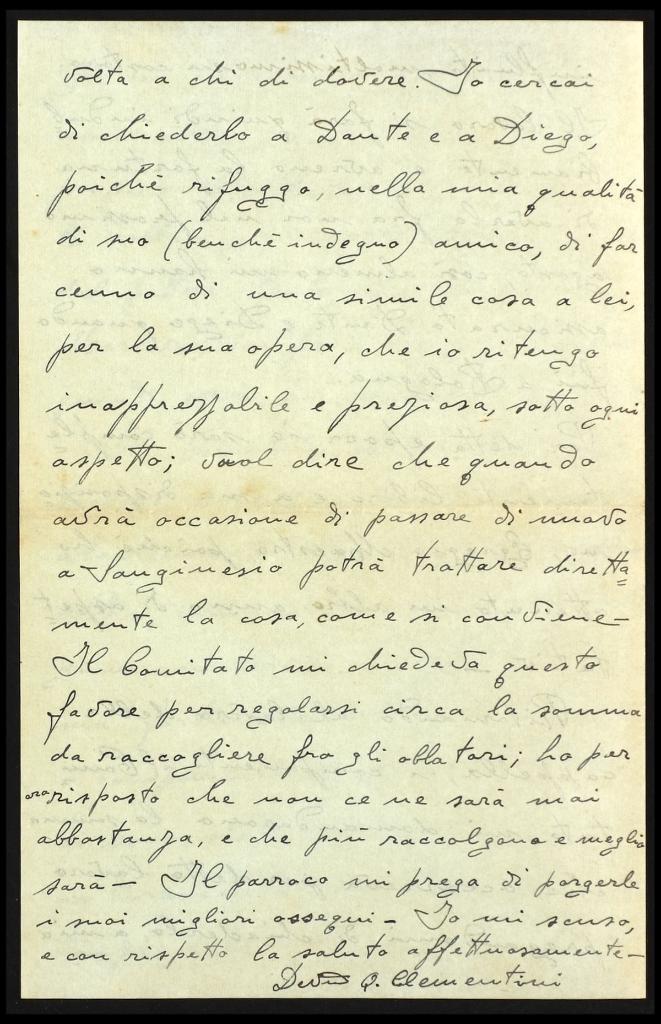 volta a chi di dovere. Io cercai
di chiederlo a Dante e a Diego,
poichè rifuggo, nella mia qualità
di suo (benchè indegno) amico, di far
cenno di una simile cosa a lei,
per la sua opera, che io ritengo
inapprezzabile e preziosa, sotto ogni
aspetto; vuol dire che quando
avrà occasione di passare di nuovo
a Sanginesio potrà trattare diretta=
mente la cosa, come si conviene —
Il Comitato mi chiedeva questo
favore per regolarsi circa la somma
da raccogliere fra gli oblatori; ho per
ora risposto che non ce ne sarà mai
abbastanza, e che più raccolgono e meglio
sarà — Il parroco mi prega di porgerle
i suoi migliori ossequi — Io mi scuso,
e con rispetto la saluto affettuosamente —
Q. Clementini